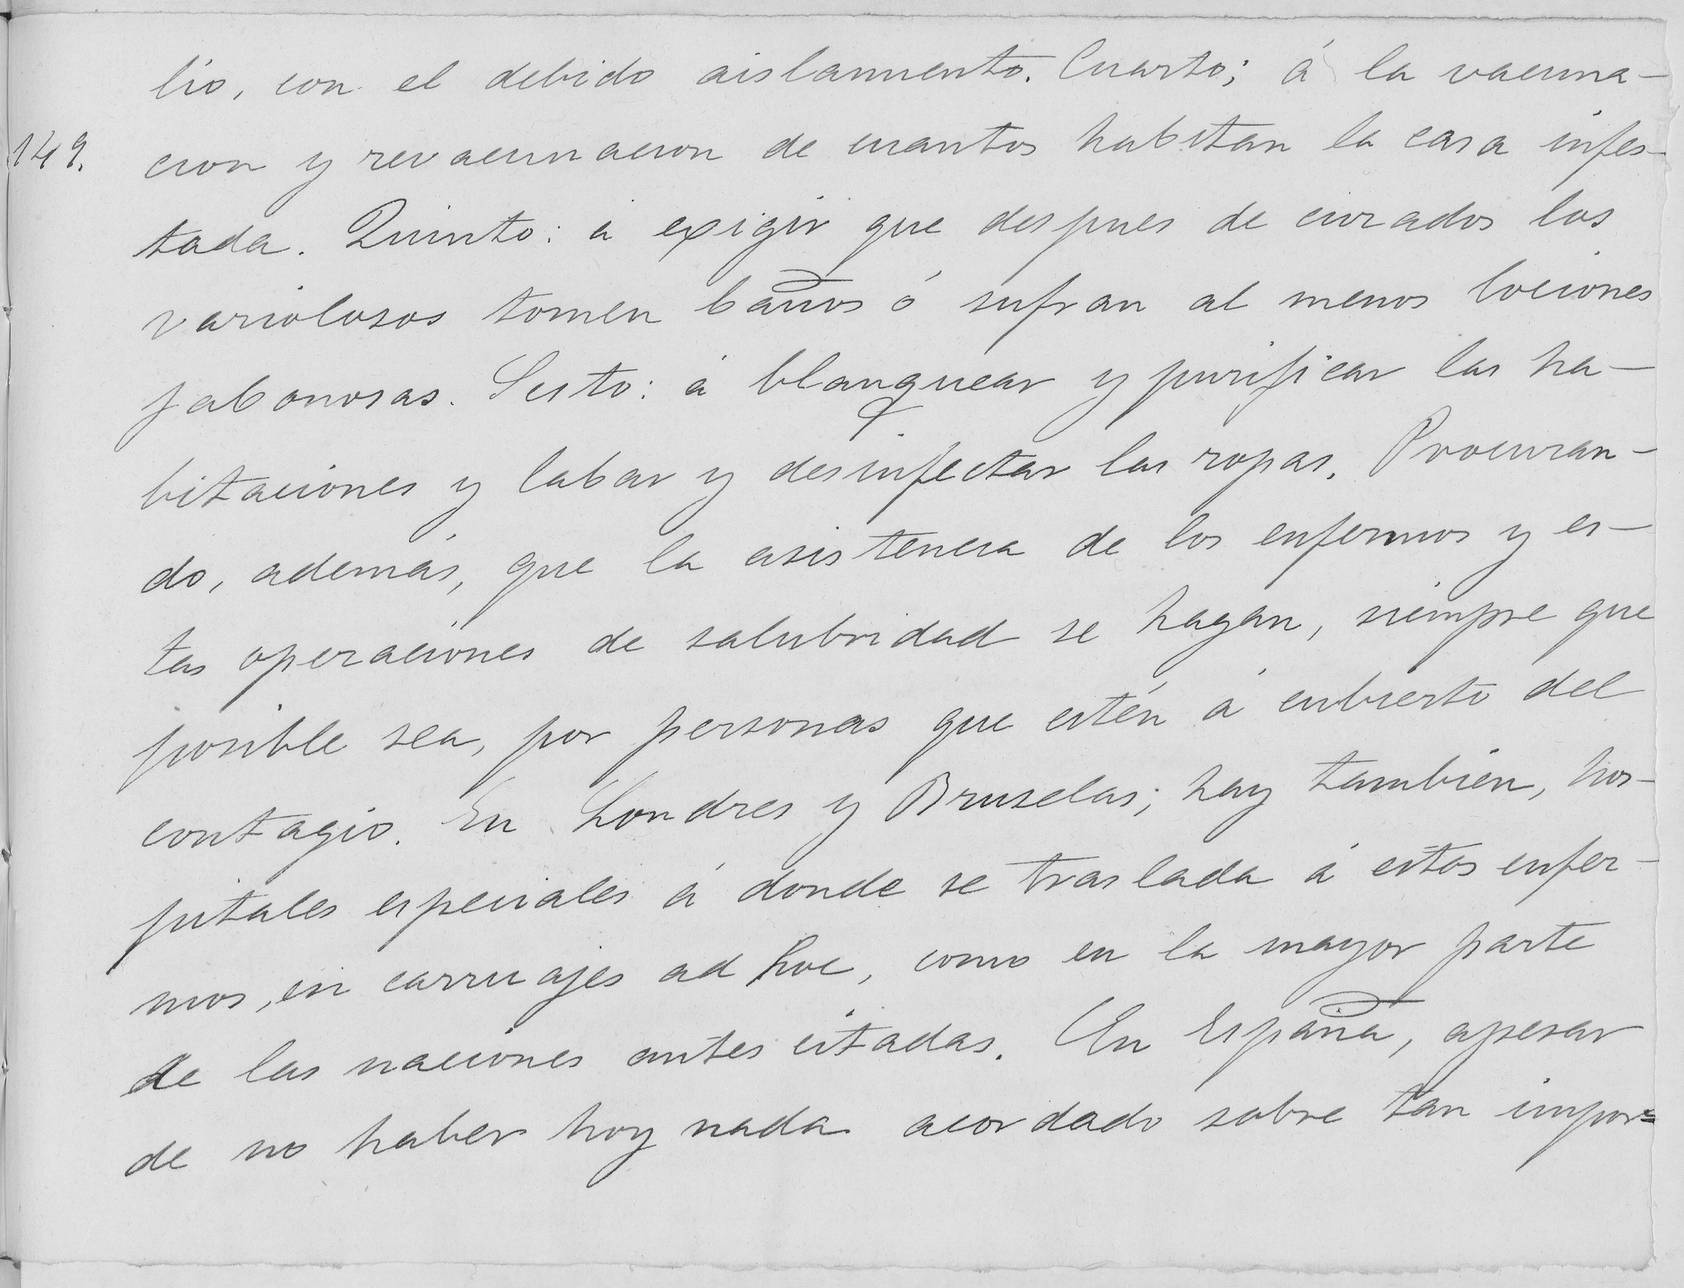 lio, con el debido aislamiento. Cuarto; á la vacuna-
149. cion y revacunacion de cuantos habitan la casa infes-
tada. Quinto: á exigir que despues de curados los
variolosos tomen baños ó sufran al menos lociones
jabonosas. Sesto: á blanquear y purificar las ha-
bitaciones y labar y desinfectar las ropas. Procuran-
do, además, que la asistencia de los enfermos y es-
tas operaciones de salubridad se hagan, siempre que
posible sea, por personas que estén á cubierto del
contagio. En Londres y Bruselas; hay tambien, hos-
pitales especiales á donde se traslada á estos enfer-
mos, en carruajes ad hoc, como en la mayor parte
de las naciones antes citadas. En España, apesar
de no haber hoy nada acordado sobre tan impor=